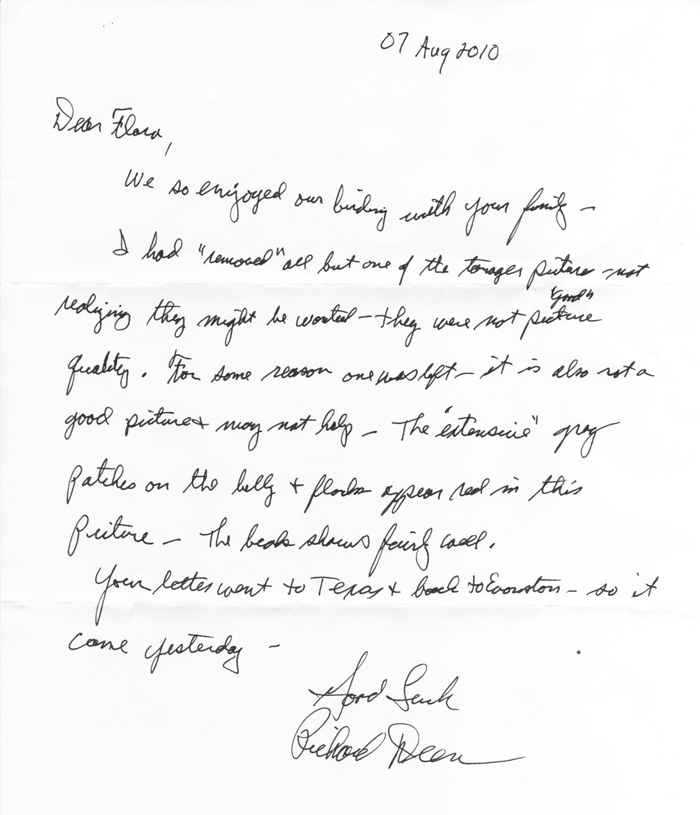 07 Aug 2010
Dear Flora,
We so enjoyed our birding with your family –
I had "removed" all but one of the tanager pictures – not
realizing they might be wanted – they were not "good" picture
quality. For some reason one was left – it is also not a
good picture & may not help – The "extensive" gray
patches on the belly & flanks appear red in this
picture – The beak shows fairly well.
Your letter went to Texas & back to Evanston – so it
came yesterday –
Good Luck
Richard Dean